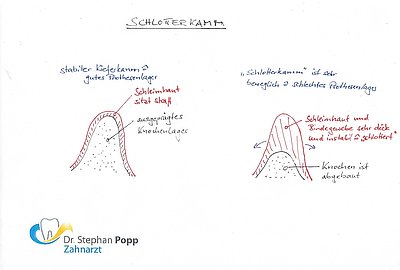 SCHLOTTERKAMM
stabiler Kieferkamm ≙
gutes Prothesenlager
Schleimhaut
sitzt straff
ausgeprägtes
Knochenlager
„Schlotterkamm" ist sehr
beweglich ≙ schlechtes Prothesenlager
Schleimhaut und
Bindegewebe sehr dick
und instabil ≙ „schlottert"
Knochen ist
abgebaut
Dr. Stephan Popp
Zahnarzt